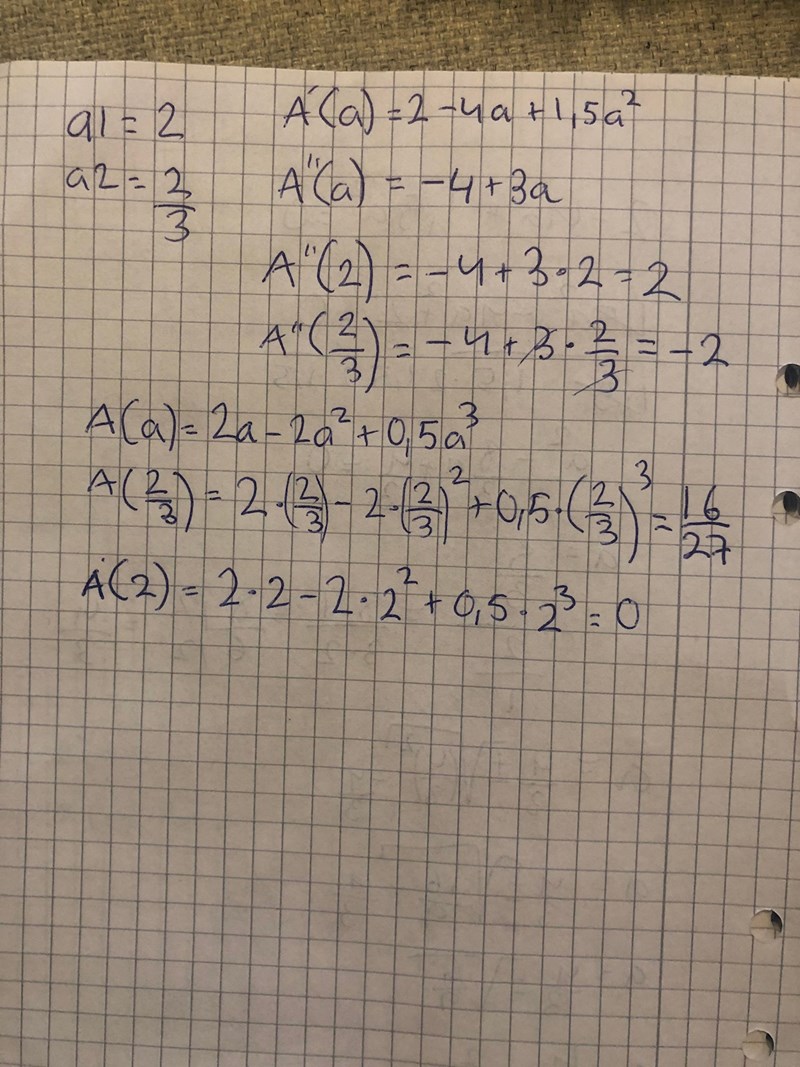 a1 = 2 A'(a) = 2 - 4a + 1,5a²
a2 = 2/3 A''(a) = -4 + 3a
A''(2) = -4 + 3 · 2 = 2
A''(2/3) = -4 + 3 · 2/3 = -2
A(a) = 2a - 2a² + 0,5a³
A(2/3) = 2 · (2/3) - 2 · (2/3)² + 0,5 · (2/3)³ = 16/27
A(2) = 2 · 2 - 2 · 2² + 0,5 · 2³ = 0